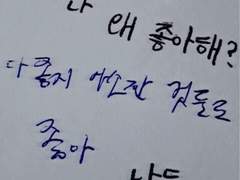 나 왜 좋아해?
다 좋지 사소한 것들도
좋아
나도